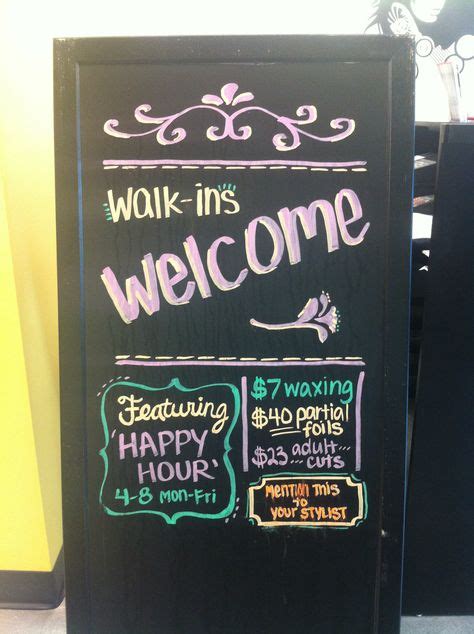 Walk-ins
Welcome
Featuring
'HAPPY
HOUR'
4-8 Mon-Fri
$7 waxing
$40 partial
foils
$23 adult...
cuts...
Mention This
to
your STYLIST